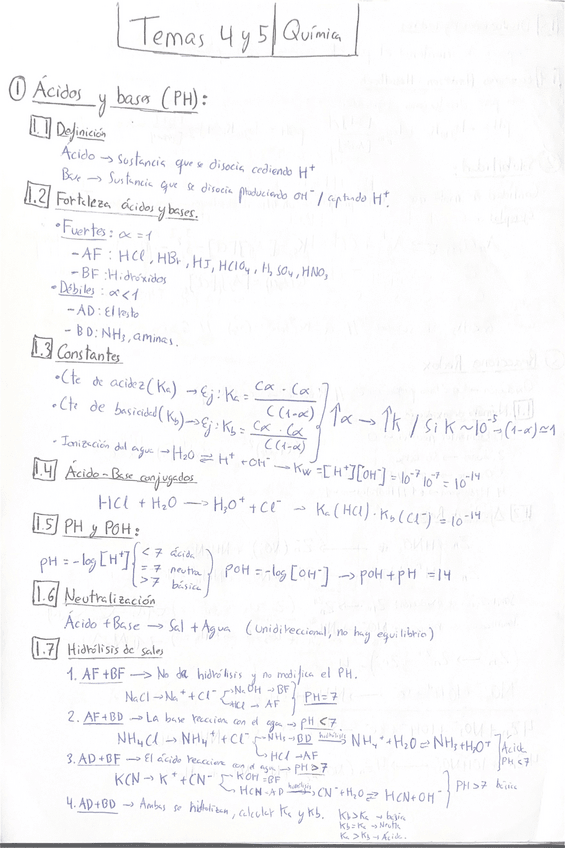 Temas 4 y 5 | Química
① Ácidos y bases (PH):
1.1 Definición
Ácido → Sustancia que se disocia cediendo H⁺
Base → Sustancia que se disocia produciendo OH⁻ / captando H⁺.
1.2 Fortaleza ácidos y bases.
• Fuertes: α = 1
- AF: HCl, HBr, HI, HClO₄, H₂SO₄, HNO₃
- BF: Hidróxidos
• Débiles: α < 1
- AD: El resto
- BD: NH₃, aminas.
1.3 Constantes
• Cte de acidez (Ka) → Ej: Ka = Cα · Cα / C(1-α)
• Cte de basicidad (Kb) → Ej: Kb = Cα · Cα / C(1-α)
↑α → ↑K / Si K ~ 10⁻⁵ → (1-α) ≃ 1
• Ionización del agua → H₂O ⇌ H⁺ + OH⁻ → Kw = [H⁺][OH⁻] = 10⁻⁷ 10⁻⁷ = 10⁻¹⁴
1.4 Ácido-Base conjugados
HCl + H₂O → H₃O⁺ + Cl⁻ → Ka (HCl) · Kb (Cl⁻) = 10⁻¹⁴
1.5 PH y POH:
pH = -log [H⁺] { < 7 ácida
= 7 neutra
> 7 básica
POH = -log [OH⁻] → pOH + pH = 14
1.6 Neutralización
Ácido + Base → Sal + Agua (unidireccional, no hay equilibrio)
1.7 Hidrólisis de sales
1. AF + BF → No da hidrólisis y no modifica el PH.
NaCl → Na⁺ + Cl⁻ NaOH → BF
HCl → AF
PH = 7
2. AF + BD → La base reacciona con el agua → pH < 7
NH₄Cl → NH₄⁺ + Cl⁻ NH₃ → BD hidrólisis → NH₄⁺ + H₂O ⇌ NH₃ + H₃O⁺ Ácida
HCl → AF PH < 7
3. AD + BF → El ácido reacciona con el agua → PH > 7
KCN → K⁺ + CN⁻ KOH = BF
HCN - AD hidrólisis → CN⁻ + H₂O ⇌ HCN + OH⁻ PH > 7 básica
4. AD + BD → Ambas se hidrolizan, calcular Ka y Kb.
Kb > Ka → básica
Kb = Ka → Neutra
Ka > Kb → Ácida.